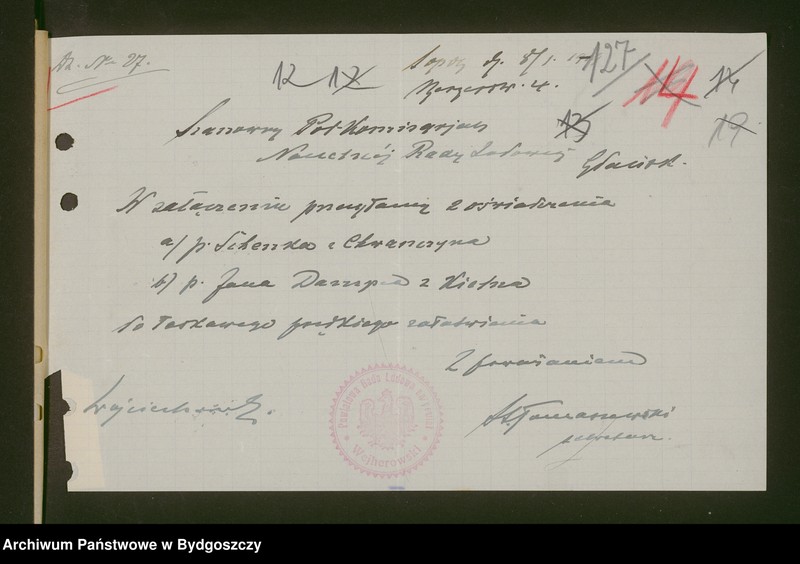 Dz. No 27.
12 12 127 14 14
Sopoty d. 8/1.
4.
13 19
Szanowny Podkomisarjat
Naczelnej Rady Ludowej
Gdańsk.
W załączeniu przesyłamy 2 oświadczenia
a/ p. Schenka z Chwaszczyna
b/ p. Jana Dampca z Kielna
do łaskawego prędkiego załatwienia
Z poważaniem
Wojciechowski. St. Tomaszewski
sekretarz.
Powiatowa Rada Ludowa na powiat
Wejherowski
Archiwum Państwowe w Bydgoszczy